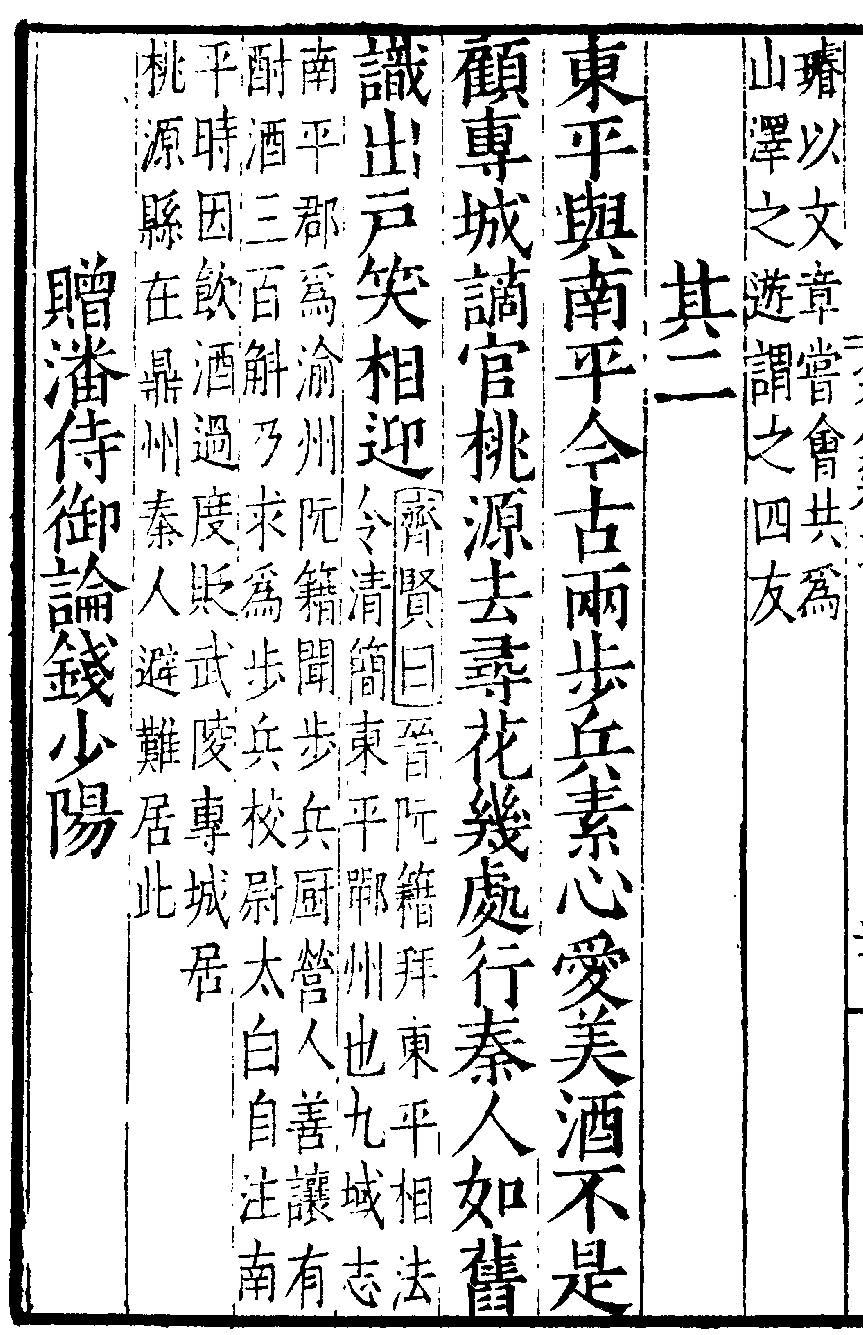 璿以文章嘗會共爲
山澤之遊謂之四友
其二
東平與南平今古兩步兵素心愛美酒不是
顧專城謫官桃源去尋花幾處行秦人如舊
識出戸笑相迎
齊賢曰晉阮籍拜東平相法
令清簡東平鄆州也九域志
南平郡爲渝州阮籍聞步兵厨營人善讓有
酎酒三百斛乃求爲步兵校尉太白自注南
平時因飲酒過度貶武陵專城居
桃源縣在鼎州秦人避難居此
贈潘侍御論錢少陽